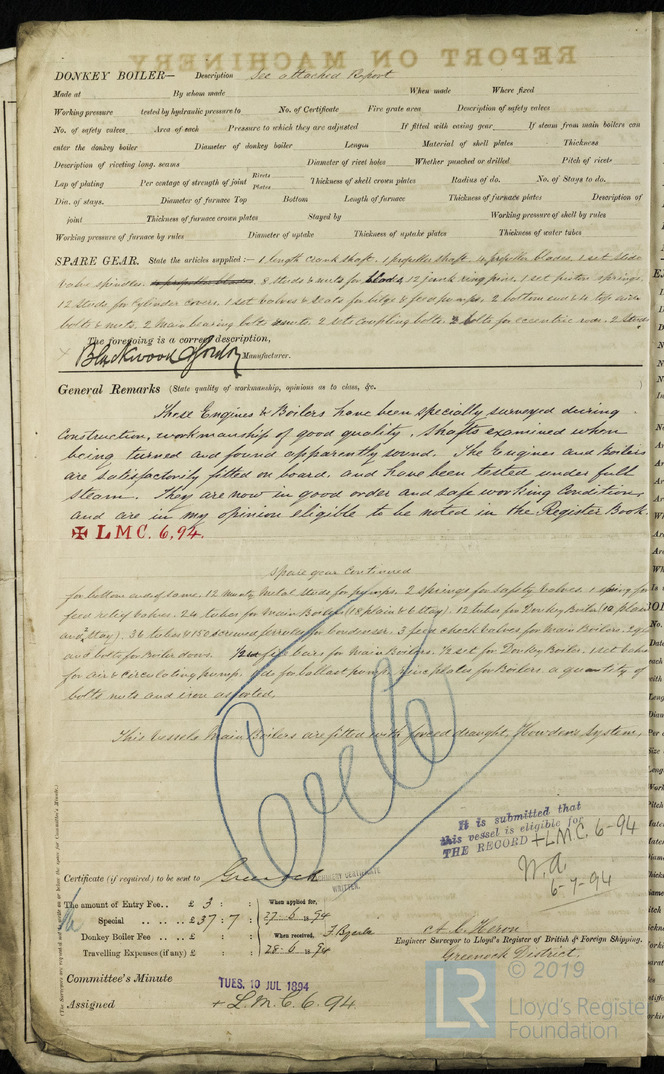 REPORT ON MACHINERY
DONKEY BOILER— Description See attached Report
Made at By whom made When made Where fixed
Working pressure tested by hydraulic pressure to No. of Certificate Fire grate area Description of safety valves
No. of safety valves Area of each Pressure to which they are adjusted If fitted with easing gear If steam from main boilers can
enter the donkey boiler Diameter of donkey boiler Length Material of shell plates Thickness
Description of riveting long. seams Diameter of rivet holes Whether punched or drilled Pitch of rivets
Lap of plating Per centage of strength of joint Rivets Plates Thickness of shell crown plates Radius of do. No. of Stays to do.
Dia. of stays. Diameter of furnace Top Bottom Length of furnace Thickness of furnace plates Description of
joint Thickness of furnace crown plates Stayed by Working pressure of shell by rules
Working pressure of furnace by rules Diameter of uptake Thickness of uptake plates Thickness of water tubes
SPARE GEAR. State the articles supplied:— 1 length crank shaft. 1 propeller shaft. 4 propeller blades. 1 set slide
valve spindles. 8 studs & nuts for blades, 12 junk ring pins, 1 set piston springs
12 studs for cylinder covers. 1 set valves & seats for bilge & feed pumps. 2 bottom end & 4 top end
bolts & nuts. 2 main bearing bolts & nuts. 2 sets coupling bolts. 2 bolts for eccentric rods. 2 studs
The foregoing is a correct description,
Blackwood & Gordon Manufacturer.
General Remarks (State quality of workmanship, opinions as to class, &c.
These Engines & Boilers have been specially surveyed during
construction, workmanship of good quality. Shafts examined when
being turned and found apparently sound. The Engines and Boilers
are satisfactorily fitted on board, and have been tested under full
steam. They are now in good order and safe working condition,
and are in my opinion eligible to be noted in the Register Book.
✠ LMC. 6,94.
Spare gear continued
for bottom ends of same. 12 Muntz Metal studs for pumps. 2 springs for safety valves. 1 spring for
feed relief valves. 24 tubes for Main Boilers (18 plain & 6 stay). 12 tubes for Donkey Boiler (10 plain
and 2 stay). 36 tubes & 150 screwed ferrules for condenser. 3 feed check valves for Main Boilers.
and bolts for Boiler doors. fire bars for Main Boilers. ½ set for Donkey Boiler. 1 set valves
for air & circulating pump. do for ballast pump. plates for Boilers. a quantity of
bolts nuts and iron assorted.
This vessels Main Boilers are fitted with forced draught, Howden's System,
It is submitted that
this vessel is eligible for
THE RECORD +LMC. 6-94
6-7-94
Certificate (if required) to be sent to Greenock
CERTIFICATE
WRITTEN.
The amount of Entry Fee.. £ 3 : : When applied for,
Special .. .. .. £ 37 : 7 : 27.6.1894
Donkey Boiler Fee .. .. £ : : When received,
Travelling Expenses (if any) £ : : 28.6.1894
Engineer Surveyor to Lloyd's Register of British & Foreign Shipping.
Greenock District.
Committee's Minute TUES. 10 JUL 1894
Assigned + L.M.C. 6.94.
© 2019
LR
Lloyd's Register
Foundation